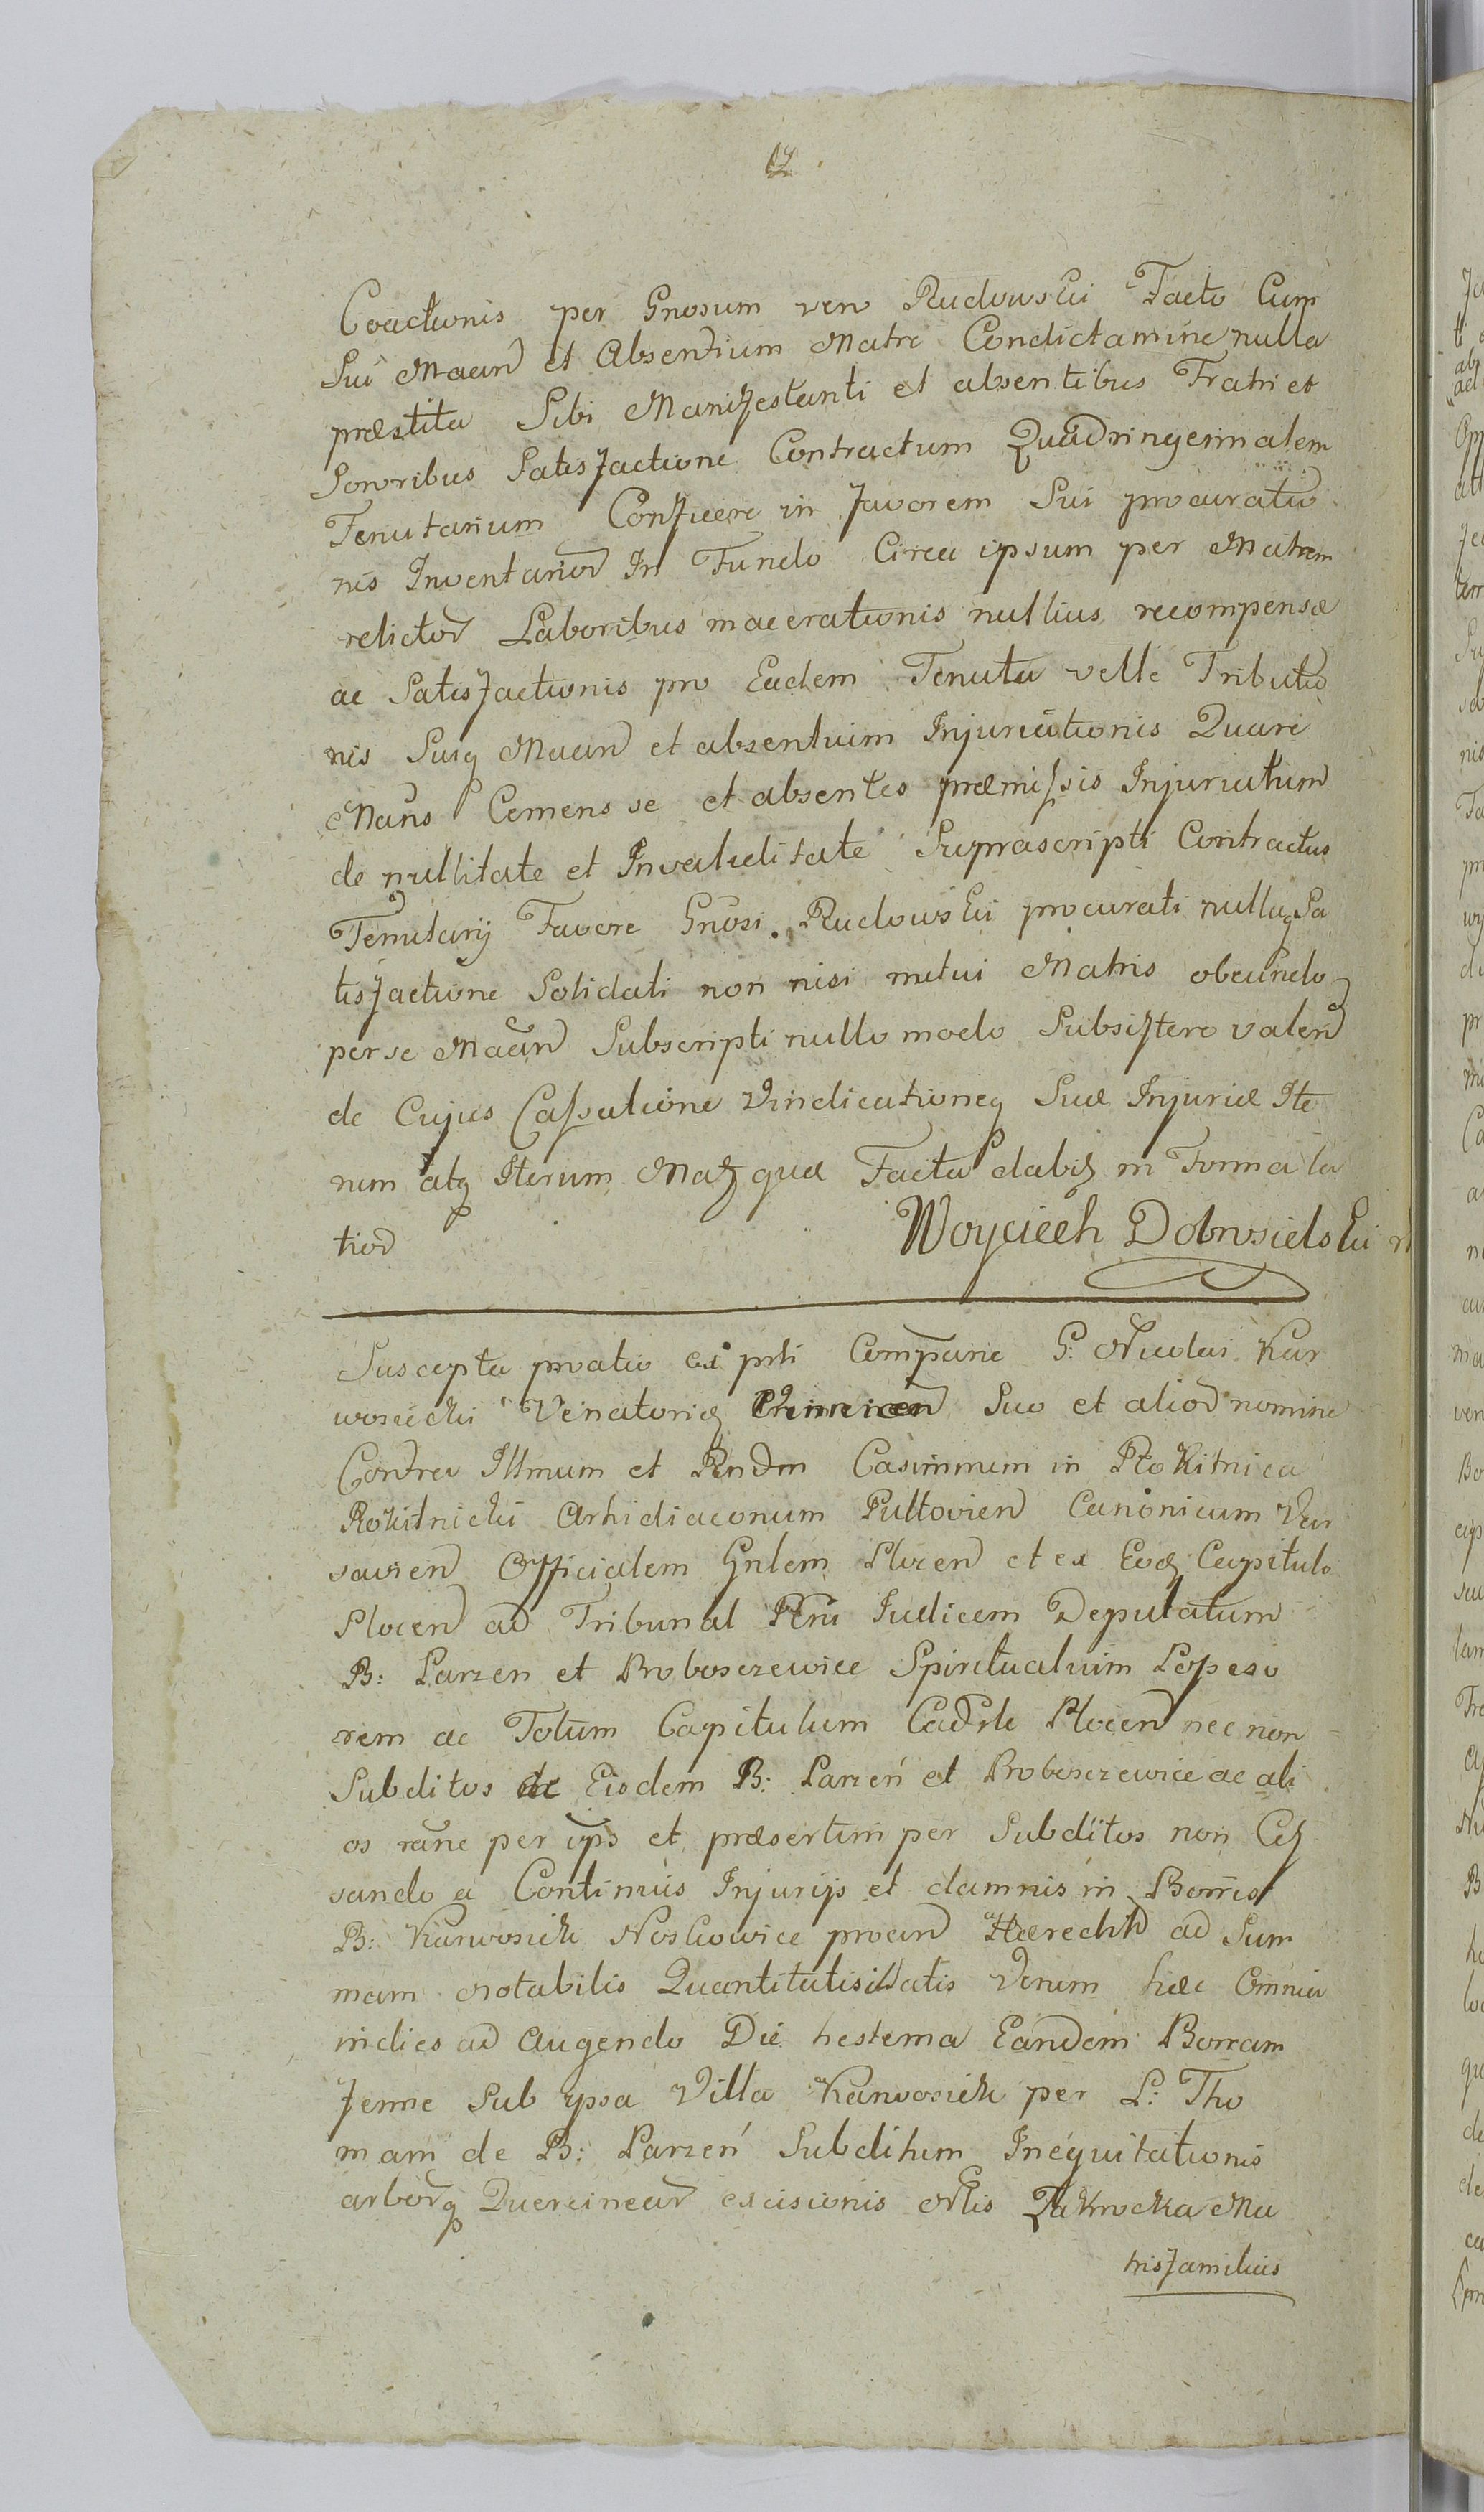 Coactionis per Gnosum ven Rudowski Facto Cum
Sui Maand et Absentium Matre Condictamine nulla
præstita Sibi Manifestanti et absentibus Fratri et
Sororibus Satisfactione Contractum Quadringerimalem
Tenutarium Conficere in favorem Sui procuratio
nis Inventariod In Fundo Circa ipsum per Matrem
relictod Laboribus macerationis nullius recompensæ
ac Satisfactionis pro Eadem Tenuta velle Tributio
nis Suiq Maand et absentium Injuriationis Quare
Mans Cernens se et absentes præmissis Injuriatum
de nullitate et Invaliditate Suprascripti Contractus
Tenutarij Favore Gnosi Rudowski procurati nullaq Sa
tisfactione Solidati non nisi metui Matris obeundo
per se Maand Subscripti nullo modo Subsistere valend
de Cujus Cassatione Vindicationeq Suæ Injuriæ Ite
rum atq Iterum Maz quæ Facta dabiz in Forma la
tiod
Woyciech Dobrosielski
Suscepta proatio ex prti Comparie G: Nicolai Kar
wosiecki Venatoriz Suo et aliod nomine
Contra Illmum et Rndm Casimirum in Rokitnica
Rokitnicki Archidiaconum Pultovien Canonicum Var
savien Officialem Gnlem Plocend et ex Eoq Capitulo
Plocend ad Tribunal Rni Iudicem Deputatum
B: Parzen et Proboszcewice Spiritualium Posseso
rem ac Totum Capitulum Cadrle Plocend nec non
Subditos de Eisdem B: Parzeń et Proboszcewice ac ali
os rane per ips et præsertim per Subditos non Ces
sando a Continuis Injurijs et damnis in Borris
B: Karwosieki Noskowice proand Hæredit ad Sum
mam notabilis Quantitatis illatis Verum hæc Omnia
indies ad augendo Die hesterna Eandem Borram
ferme Sub ipsa Villa Karwosieki per L: Tho
mam de B: Parzeń Subditum Inequitationis
arborq Quercinead excisionis Nlis Zakrocka Ma
trisfamilias